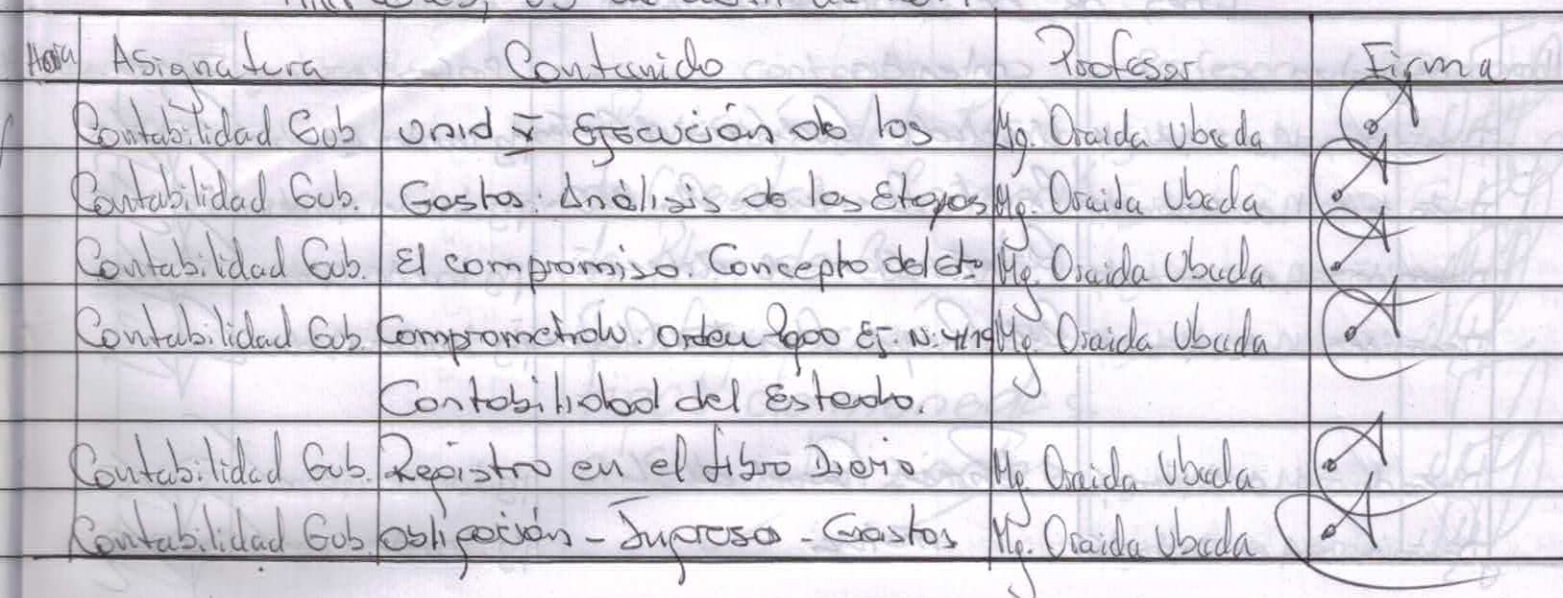 Hora Asignatura Contenido Profesor Firma
Contabilidad Gub Unid V Ejecución de los Mg. Oraida Ubeda
Contabilidad Gub. Gastos: Análisis de las Etapas Mg. Oraida Ubeda
Contabilidad Gub. El compromiso. Concepto del Mg. Oraida Ubeda
Contabilidad Gub. Orden Pago Ej. N: 4/19 Mg. Oraida Ubeda
Contabilidad del Estado.
Contabilidad Gub. Registro en el Libro Diario Mg. Oraida Ubeda
Contabilidad Gub Obligación - Ingreso - Gastos Mg. Oraida Ubeda